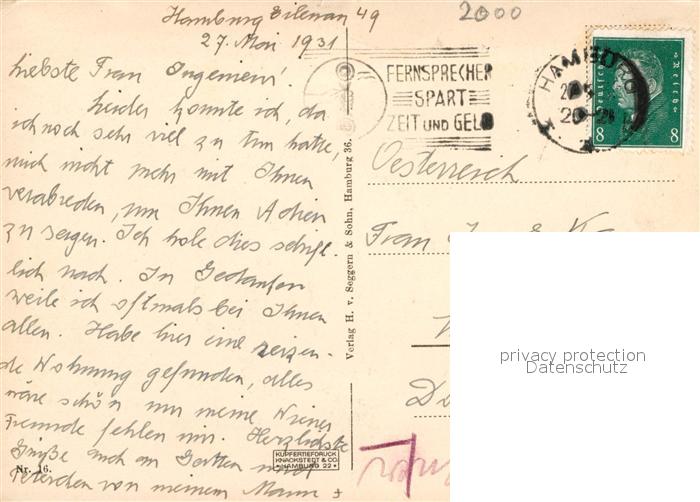 Hamburg Eilenau 49
27. Mai 1931
2000
Liebste Frau Ingenieur!
Leider konnte ich, da
ich noch sehr viel zu tun hatte,
mich nicht mehr mit Ihnen
verabreden, um Ihnen Adieu
zu sagen. Ich hole dies schrift-
lich nach. In Gedanken
weile ich oftmals bei Ihnen
allen. Habe hier eine reizen-
de Wohnung gefunden, alles
wäre schön nur meine Wiener
Freunde fehlen mir. Herzlichste
Grüße auch an Gatten und
von meinem Mann
Nr. 16.
Verlag H. v. Seggern & Sohn, Hamburg 36.
KUPFERTIEFDRUCK
KNACKSTEDT & CO
HAMBURG 22
FERNSPRECHER
SPART
ZEIT UND GELD
HAMBURG
Deutsches Reich
8 8
Oesterreich
Frau
privacy protection
Datenschutz